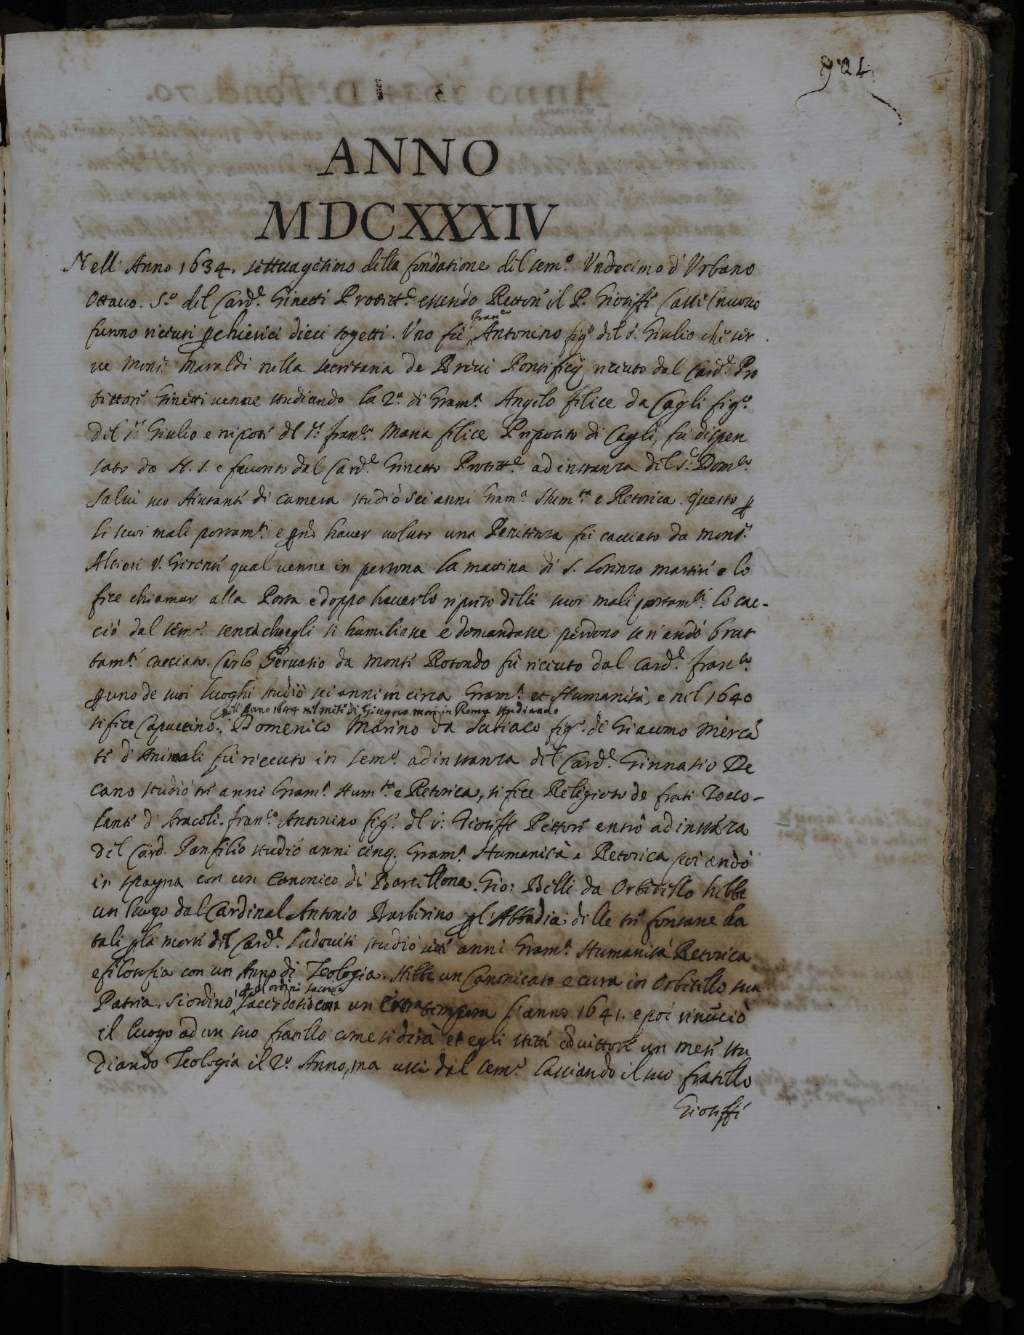 921
ANNO
MDCXXXIV
Nell' Anno 1634. settuagesimo della fondatione del sem.º Undecimo d' Urbano
Ottavo. S.º del Card.le Ginetti Protett.re essendo Rettore il P. Gioseffi
furno riceuti p chierici dieci sogetti. Uno fù Fran.co Antonino fig.º del s. Giulio che ser
ve Mons.r Maraldi nella secretaria de Brevi Pontificij riceuto dal Card.le Pro
tettore Ginetti venne studiando la 2.ª di Gram.ca Angelo felice da Cagli fig.º
del s.r Giulio e nipote del s.r fran.co Maria felice Preposito di Cagli, fu dispen
sato da N. S. e favorito dal Card.le Ginetti Protett.re ad instanza del s.r Dom.co
Salvi suo Aiutante di camera studiò sei anni Gram.ca Hum.tà e Retorica. Questo p
li suoi mali portam.ti e p haver voluto una fù cacciato da mons.r
Altieri V. Gerente qual venne in persona la matina di S. Lorenzo martire e lo
fece chiamar alla Porta e doppo haverlo ripreso delli suoi mali portam.ti lo cac-
ciò dal sem.º senza ch'egli si humiliasse e domandasse perdono se n'andò brut
tam.te cacciato. Carlo Gervasio da Monte Rotondo fù riceuto dal Card.le fran.co
p uno de suoi luoghi studiò sei anni in circa Gram.ca et Humanità, e nel 1640
si fece Capuccino. l' Anno 1644 nel mese di Giugno morì in Roma studiando
Domenico Marino da Subiaco fig.º de Giacomo Mercā
te d' Animali fù riceuto in sem.º ad instanza del Card.le Ginnasio De
cano studiò tre anni Gram.ca Hum.tà e Retorica, si fece Religioso de frati Zocco-
lanti d' Araceli. fran.co Antonino fig.º del s. Gioseffe Pittore entrò ad instāza
del Card. Panfilio studiò anni cinq. Gram.ca Humanità e Retorica poi andò
in spagna con un canonico di Barcellona. Gio: Belli da Orbetello hebbe
un luogo dal Cardinal Antonio Barberino p l'Abbadia delle tre fontane da
tali p la morte del Card.le Ludovisi studiò sette anni Gram.ca Humanità Retorica
e filosofia con un Anno di Teologia. Hebbe un Canonicato e cura in Orbetello sua
Patria. si ordinò p al ordini sacri sacerdotio con un Extra tempora l'anno 1641. e poi rinuciò
il luogo ad un suo fratello come si dirà et egli stette cōvittore un mese stu
diando Teologia il 2.º Anno, ma uscì dal sem.º lasciando il suo fratello
Gioseffi